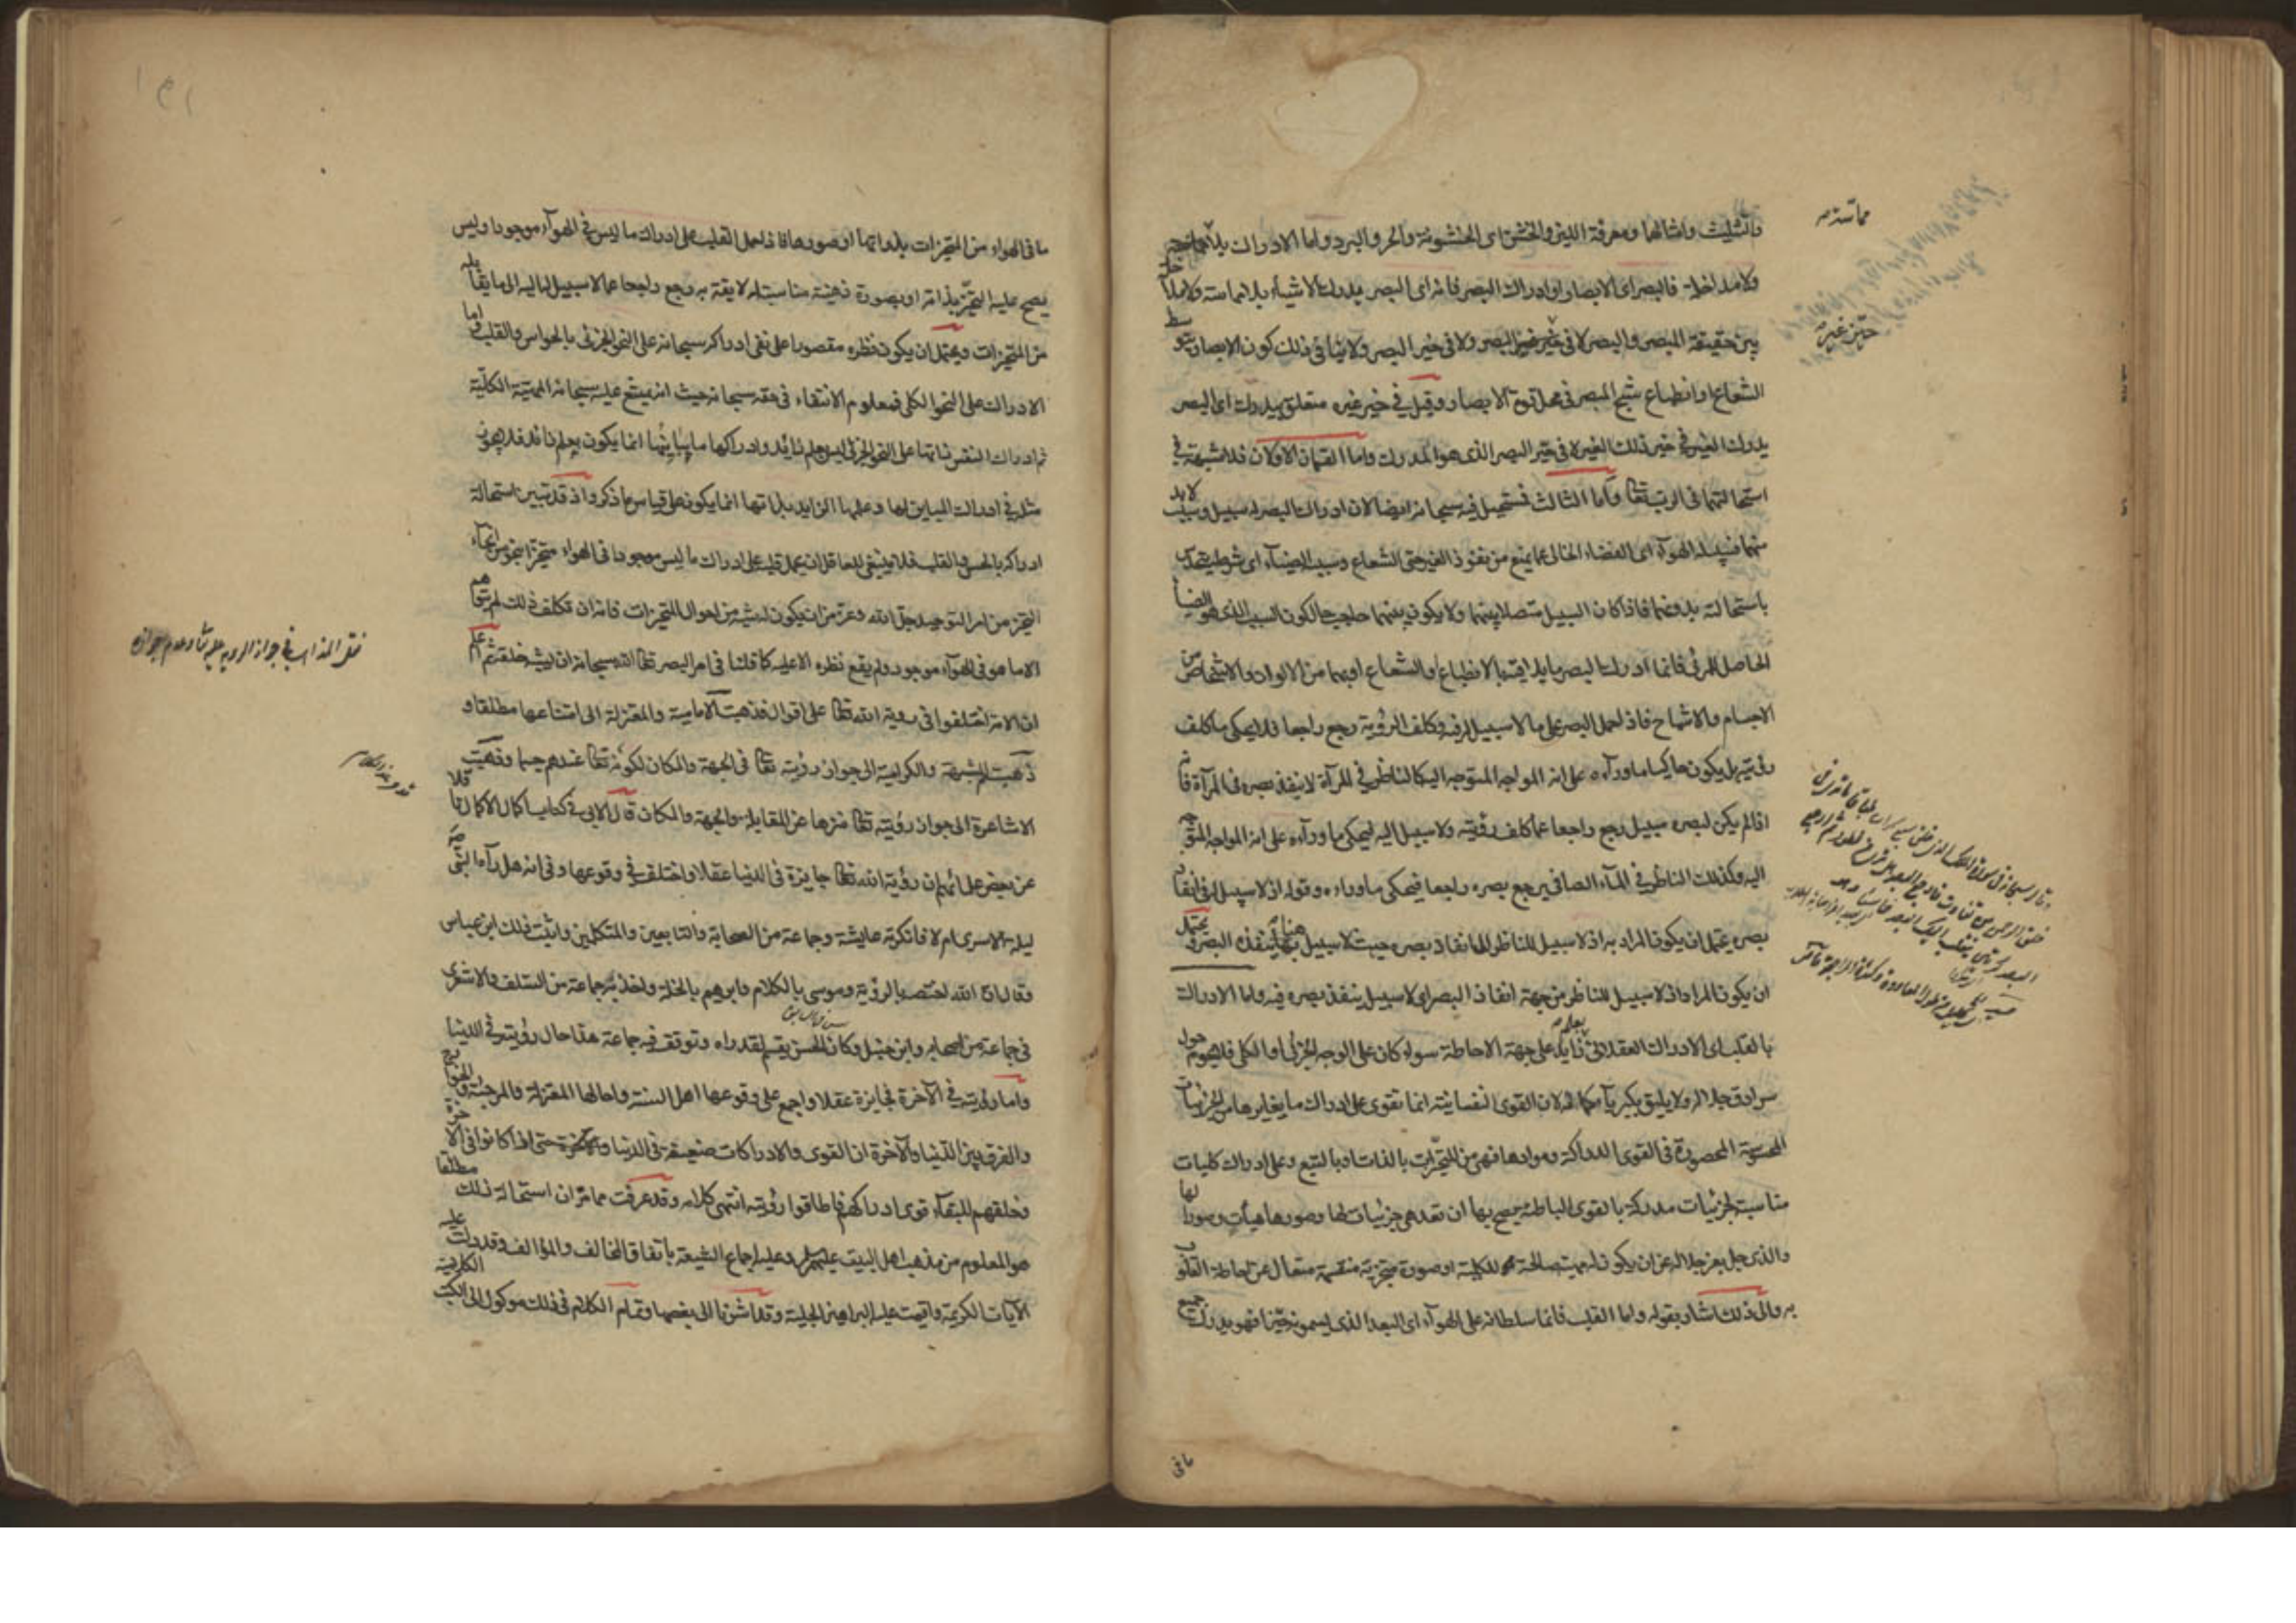 والتثليث وامثالها ومعرفة اللين والخشن اى الخشونة والحر والبرد واما الادراك بلا
مماسة
ولا مداخلة فالبصر اى الابصار او ادراك البصر فانه اى البصر يدرك الاشياء بلا مماسة ولا مداخلة
بين حقيقة المبصر والبصر لا فى حيز غيره البصر ولا فى حيز البصر ولا ينافى ذلك كون الابصار بتوسط
حيز غيره
الشعاع او انطباع شبح المبصر فى محل قوة الابصار وقيل فى حيز غيره متعلق بيدرك اى البصر
يدرك الغير فى حيز ذلك الغير لا فى حيز البصر الذى هو المدرك واما القسمان الاولان فلا شبهة فى
استحالتهما فى الرب تعالى واما الثالث فمستحيل فيه سبحانه ايضا لان ادراك البصر له سبيل وسبب لابد
منهما فسبيله الهواء اى الفضاء الخالى عما يمنع من نفوذ الغير حتى الشعاع وسببه الضياء اى شرط
باستحالته بدونهما فاذا كان السبيل متصلا بينهما ولا يكون بينهما حاجب حالكون السبب الذى هو الضياء
الحاصل للمرئى فانما ادرك البصر ما يلاقيه بالانطباع والشعاع او بهما من الالوان والاشخاص من
الاجسام والاشباح فاذا حمل البصر على ما لا سبيل له فيه وكلف الرؤية رجع راجعا فلا يحكى ما كلف
رؤيته بل يكون حاكيا ما وراءه على انه المواجه المتوجه اليه كالناظر فى المرآة لا ينفذ بصره فى المرآة فانه
اذا لم يكن لبصره سبيل رجع راجعا عما كلف رؤيته ولا سبيل اليه ليحكى ما وراءه على انه المواجه المتوجه
اليه وكذلك الناظر فى الماء الصافى يرجع بصره راجعا فيحكى ما وراءه وقوله اذ لا سبيل له فى انفاذ
بصره يحتمل ان يكون المراد به اذ لا سبيل للناظر للانفاذ بصره حيث لا سبيل هناك ينفذ البصر فيه يحتمل
ان يكون المراد اذ لا سبيل للناظر من جهة انفاذ البصر اى لا سبيل ينفذ بصره فيه واما الادراك
بالقلب اى الادراك العقلانى بعلم زايد على جهة الاحاطة سواء كان على الوجه الجزئى او الكلى فلا يحوم حول
سرادق جلاله ولا يليق بكبرياء كماله لان القوى النفسانية انما تقوى على ادراك ما يغايرها من الجزئيات
المحسوسة المحصورة فى القوى الدراكة وموادها فهى من المتحيزات بالذات او بالتبع وعلى ادراك كليات
مناسبة لجزئيات مدركة بالقوى الباطنة يصح بها ان تعد هى جزئيات لها وصورها هيآت وصورا لها
والذى جل بعز جلاله عن ان يكون له مهية صالحة للكلية او صورة متحيزية منقسمة متعال عن احاطة القلوب
به والى ذلك اشار بقوله واما القلب فانما سلطانه على الهواء اى البعد الذى يسمونه حيزا فهو يدرك جميع
ما فى
ما فى الهواء من المتحيزات بذواتها او صورها فاذا حمل القلب على ادراك ما ليس فى الهواء موجودا وليس
يصح عليه التحيز بذاته او بصورة ذهنية مناسبة له لايقة به رجع راجعا عما لا سبيل له اليه الى ما يقابله
من المتحيزات ويحتمل ان يكون نظره مقصورا على نفى ادراكه سبحانه على النحو الجزئى بالحواس والقلب واما
الادراك على النحو الكلى فمعلوم الانتفاء فى حقه سبحانه حيث انه يمتنع عليه سبحانه المهية الكلية
ثم ادراك النفس ذاتها على النحو الجزئى ليس بعلم زايد وادراكها ما يباينها انما يكون بعلم زايد فلا يجوز
مثله فى ادراك المباين لها وعلمها الزايد بذاتها انما يكون على قياس ما ذكر واذ قد تبين استحالة
ادراكه بالحس والقلب فلا ينبغى للعاقل ان يحمل قلبه على ادراك ما ليس موجودا فى الهواء متحيزا بنحو من انحاء
التحيز من امر التوحيد جل الله وعز من ان يكون له شبه من احوال المتحيزات فانه ان تكلف ذلك لم يتوهم
الا ما هو فى الهواء موجود ولم يقع نظره الا عليه كما قلنا فى امر البصر تعالى الله سبحانه ان يشبهه خلقه ثم اعلم
نقل المذاهب فى جواز الرؤية عليه تعالى وعدم جوازه
ان الامة اختلفوا فى رؤية الله تعالى على اقوال فذهبت الامامية والمعتزلة الى امتناعها مطلقا و
ذهبت المشبهة والكرامية الى جواز رؤيته تعالى فى الجهة والمكان لكونه تعالى عندهم جسما وذهبت
الاشاعرة الى جواز رؤيته تعالى منزها عن المقابلة والجهة والمكان قال الآبى فى كتاب اكمال الاكمال ناقلا
عن بعض علمائهم ان رؤية الله تعالى جايزة فى الدنيا عقلا واختلف فى وقوعها وفى انه هل رآه النبى ص
ليلة الاسرى ام لا فانكرته عايشة وجماعة من الصحابة والتابعين والمتكلمين واثبت ذلك ابن عباس
وقال ان الله اختصه بالرؤية وموسى بالكلام وابرهيم بالخلة واخذ به جماعة من السلف والاشعرى
فى جماعة من اصحابه وابن حنبل وكان الحسن يقسم لقد رآه وتوقف فيه جماعة هذا حال رؤيته فى الدنيا
واما رؤيته فى الآخرة فجايزة عقلا واجمع على وقوعها اهل السنة واحالها المعتزلة والمرجئة والخوارج
والفرق بين الدنيا والآخرة ان القوى والادراكات ضعيفة فى الدنيا حتى اذا كانوا فى الآخرة
وخلقهم للبقاء قوى ادراكهم فاطاقوا رؤيته انتهى كلامه وقد عرفت مما مر ان استحالة ذلك مطلقا
هو المعلوم من مذهب اهل البيت عليهم السلم وعليه اجماع الشيعة باتفاق المخالف والمؤالف وقد دلت عليه
الآيات الكريمة واقيمت عليه البراهين الجلية وقد اشرنا الى بعضها وتمام الكلام فى ذلك موكول الى الكتب الكلامية